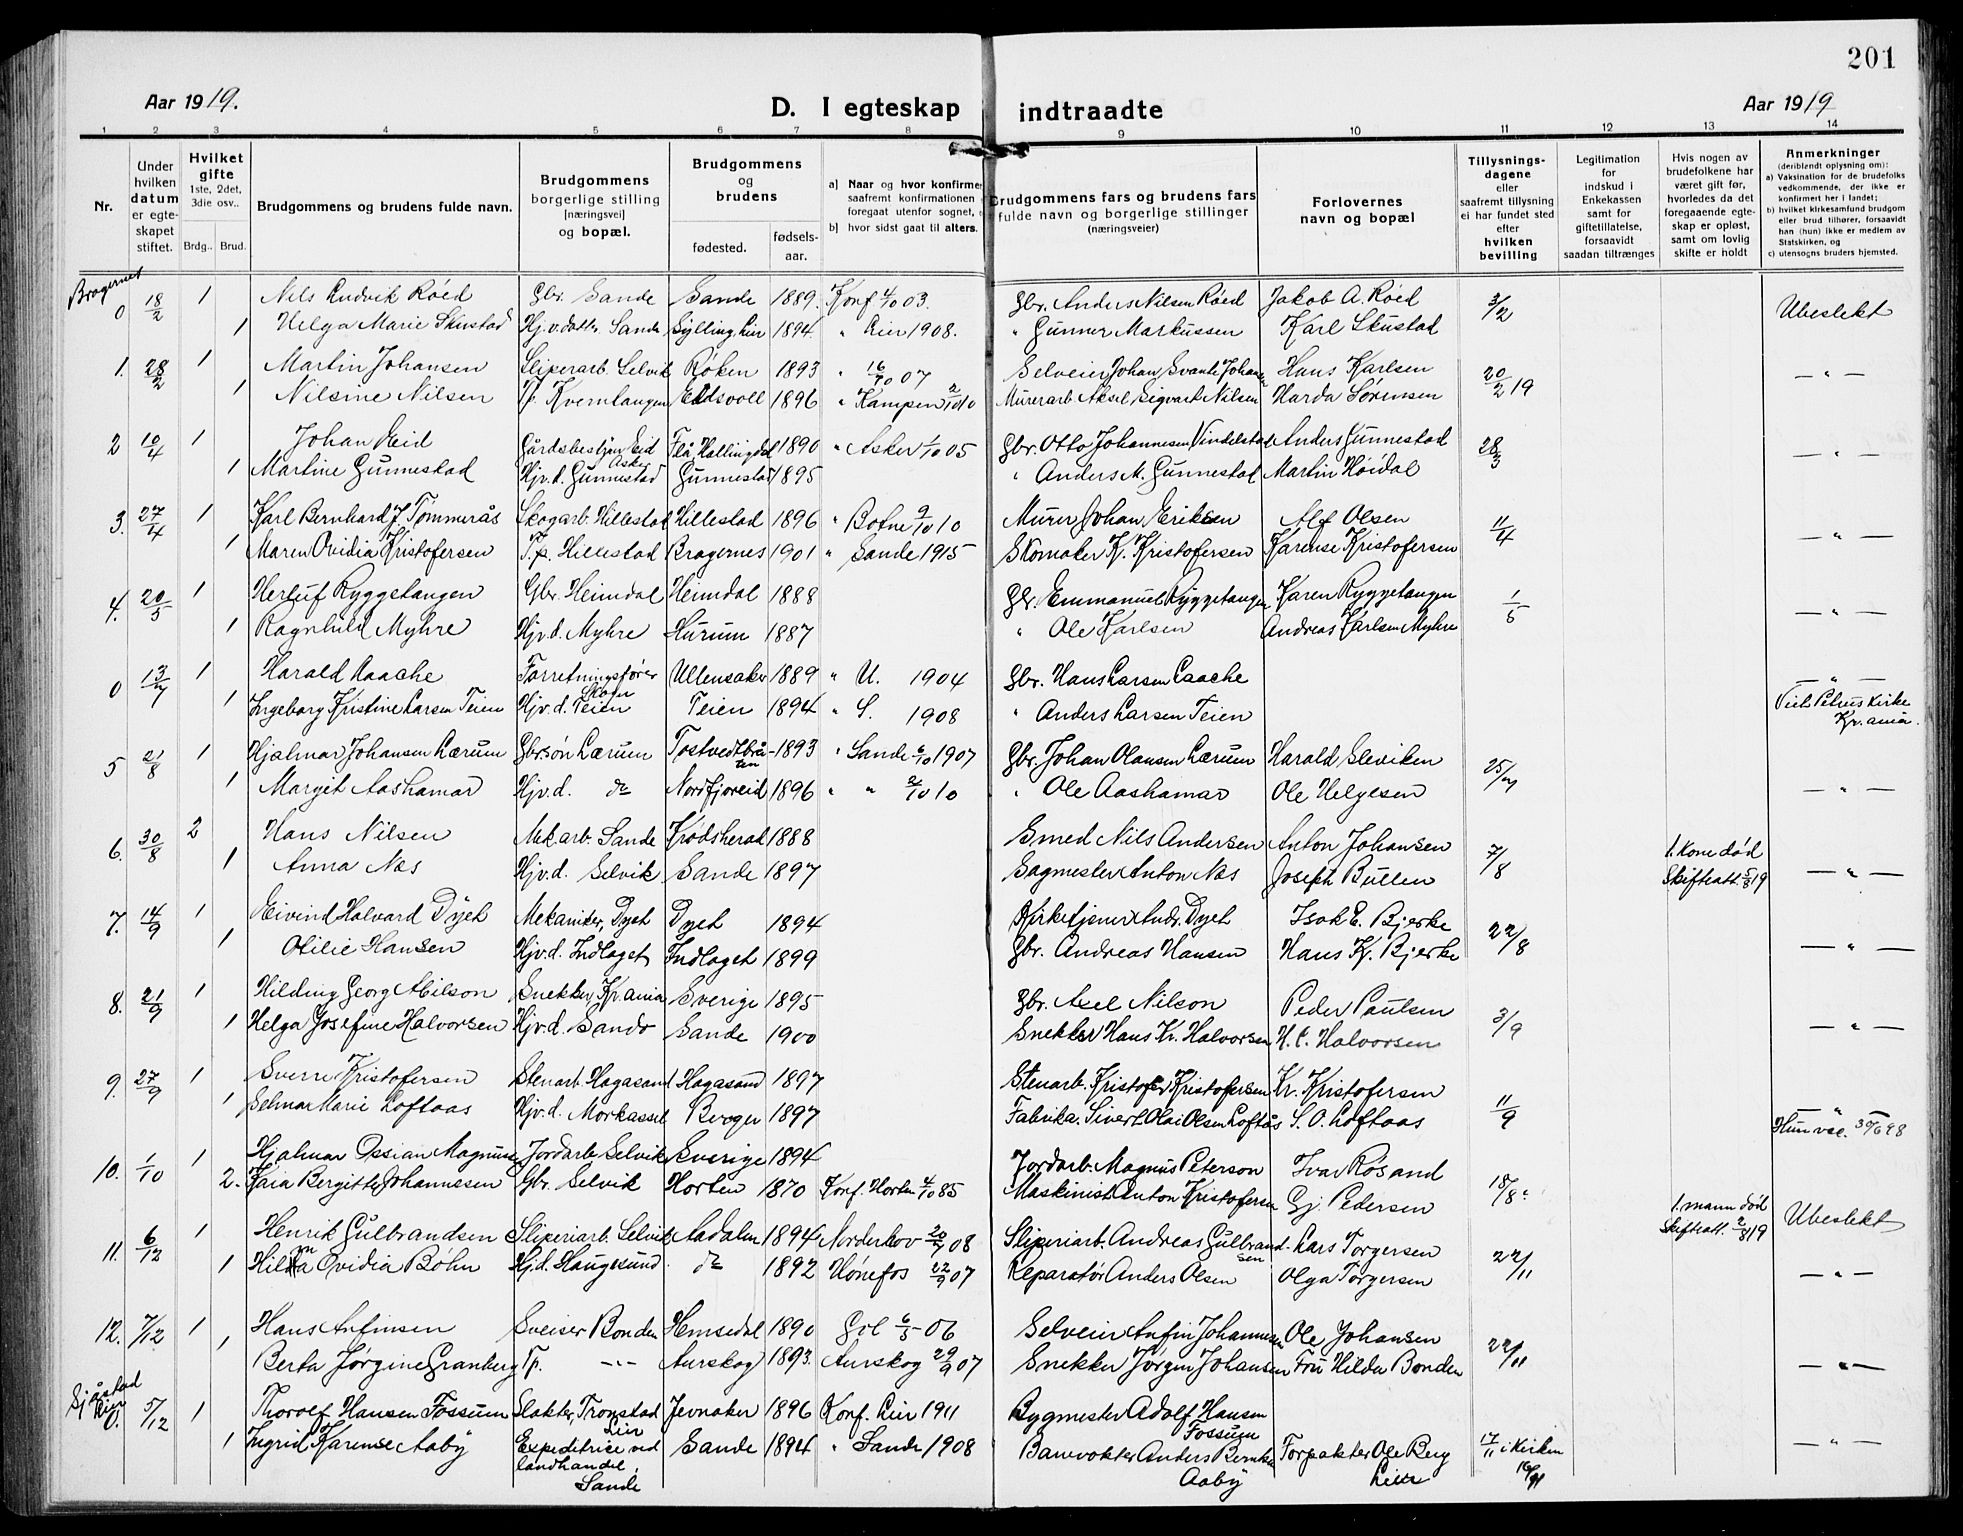 201
Aar 1919.
D. I egteskap indtraadte
Aar 1919
1 2 3 4 5 6 7 8 9 10 11 12 13 14
Nr.
Under hvilken datum er egteskapet stiftet.
Hvilket gifte 1ste, 2det, 3die osv..
Brdg. Brud.
Brudgommens og brudens fulde navn.
Brudgommens borgerlige stilling [næringsvei] og bopæl.
Brudgommens og brudens
fødested. fødsels-aar.
a] Naar og hvor konfirme saafremt konfirmationen foregaat utenfor sognet,
b] hvor sidst gaat til alters.
Brudgommens fars og brudens fars fulde navn og borgerlige stillinger (næringsveier)
Forlovernes navn og bopæl
Tillysnings-dagene eller saafremt tillysning ei har fundet sted efter hvilken bevilling
Legitimation for indskud i Enkekassen samt for giftetillatelse, forsaavidt saadan tiltrænges
Hvis nogen av brudefolkene har været gift før, hvorledes da det foregaaende egteskap er opløst, samt om lovlig skifte er holdt
Anmerkninger (deriblandt oplysning om):
a) Vaksination for de brudefolks vedkommende, der ikke er konfirmert her i landet;
b) hvilket kirkesamfund brudgom eller brud tilhører, forsaavidt han (hun) ikke er medlem av Statskirken, og
c) utensogns bruders hjemsted.
Bragernes
0 18/2 1 Nils Ludvik Röed Gbr. Sande Sande 1889. Konf 4/10 03. Gbr. Anders Nilsen Röed Jakob A. Röed 3/2 Ubeslekt
1 Helga Marie Skustad Hj.v.dattr. Sande Sylling, Lier 1894. " Lier 1908. " Gunner Markussen Karl Skustad
1. 28/2 1 Martin Johansen Sliperarb. Selvik Röken 1893 " 16/10 07 Selveier Johan Svante Johansen Hans Karlsen 20/2 19 — " —
1 Nilsine Nilsen Tp. Kverntangen Eidsvoll 1896 " Kampen 2/10 10 Murerarb. Aksel Sigvart Nilsen Harda Sörensen
2 10/4 1 Johan Eid Gårdsbestyrer Eid Asker Flå, Hallingdal 1890 " Asker 1/10 05 Gbr. Otto Johannesen Vindelstad Anders Gunnestad 28/3 — " —
1 Martine Gunnestad Hjv.d. Gunnestad Gunnestad 1895 " Anders M. Gunnestad Martin Höidal
3. 27/4 1 Karl Bernhard J. Tommerås Skogarb. Hillestad Hillestad 1896 " Botne 9/10 10 Murer Johan Eriksen Alf Olsen 11/4 — " —
1 Maren Ovidia Kristofersen Tp. Hillestad Bragernes 1901 " Sande 1915 Skomaker K. Kristofersen Karense Kristofersen
4. 20/5 1 Herluf Ryggetangen Gbr. Heimdal Heimdal 1888 Gbr. Emmanuel Ryggetangen Karen Ryggetangen 1/5 — " —
1 Ragnhild Myhre Hjv.d. Myhre Hurum 1887 " Ole Karlsen Andreas Karlsen Myhre
0 13/7 1 Harald Laache Forretningsfører Ullensaker 1889 " U. 1904 Gbr. Hans Larsen Laache — " —
1 Ingeborg Kristine Larsen Teien Hjv.d. Teien Skoger Teien 1894 " S. 1908 " Anders Larsen Teien Viet Petrus Kirke Kr.ania.
5 21/8 1 Hjalmar Johansen Lærum Gbr.søn Lærum Tostvedtbråten 1893 " Sande 6/10 1907 Gbr. Johan Olausen Lærum Harald Sleviken 25/7
1 Margit Aashamar Hjv.d. do Nordfjoreid 1896 " " 2/10 10 " Ole Aashamar Ole Helgesen — " —
6. 30/8 2 Hans Nilsen Mek.arb. Sande Krødsherad 1888 Smed Nils Andersen Anton Johansen 7/8 1. Kone död
1 Anna Næs Hjv.d. Selvik Sande 1897 Sagmester Anton Næs Joseph Bullen Skifteatt. 5/8 19 — " —
7. 14/9 1 Eivind Halvard Dyet Mekaniker, Dyet Dyet 1894 Kirketjener Andr. Dyet Isak E. Bjerke 22/8
1 Otilie Hansen Hjv.d. Indlaget Indlaget 1899 Gbr. Andreas Hansen Hans K. Bjerke — " —
8. 21/9 1 Hilding Georg Nilson Snekker, Kr.ania Sverige 1895 Gbr. Axel Nilson Peder Paulsen 3/9
1 Helga Josefine Halvorsen Hjv.d. Sande Sande 1900 Snekker Hans Kr. Halvorsen H. C. Halvorsen — " —
9. 27/9 1 Sverre Kristofersen Stenarb. Hagasand Hagasand 1897 Stenarb. Kristofer Kristofersen Kr. Kristofersen 11/9
1 Selma Marie Loftaas Hjv.d. Morkassel Berger 1897 Fabrika. Sivert Olai Olsen Loftås S. O. Loftaas — " — Hun vac. 30/6 98
10. 1/10 1 Hjalmar Ossian Magnusen Jordarb. Selvik Sverige 1894 Jordarb. Magnus Peterson Ivar Rösand 18/8
2. Kaia Bergitte Johannesen Gbr. Selvik Horten 1870 Konf. Horten 4/10 85 Maskinist Anton Kristofersen Gj. Pedersen 1. mann död Skifteatt. 2/8 19 Ubeslekt
11. 6/12 1 Henrik Gulbrandsen Sliperiarb. Selvik Aadalen 1894 Norderhov 20/7 08 Sliperiarb. Andreas Gulbrandsen Lars Torgersen 22/11
1 Hilma Ovidia Böhn Hj.d. Haugesund do 1892 Hønefos 22/9 07 Reparatör Anders Olsen Olga Torgersen — " —
12. 7/12 1 Hans Anfinsen Sveiser Bonden Hemsedal 1890 Gol 6/5 06 Selveier Anfin Johannesen Ole Johansen 22/11
1 Berta Jørgine Granberg Tp. —"— Aurskog 1893. Aurskog 29/9 07 Snekker Jörgen Johansen Fru Hilda Bonden — " —
Sjåstad Lier
0. 5/12 1 Thorolf Hansen Fossum Slakter, Tronstad Lier Jevnaker 1896 Konf. Lier 1911 Bygmester Adolf Hansen Fossum
1 Ingrid Karense Aaby Expeditrice ved landhandel, Sande Sande 1894 " Sande 1908 Banevokter Anders Bernh. Aaby Forpakter Ole Berg Lier 17/11 i Kirken 16/11 — " —